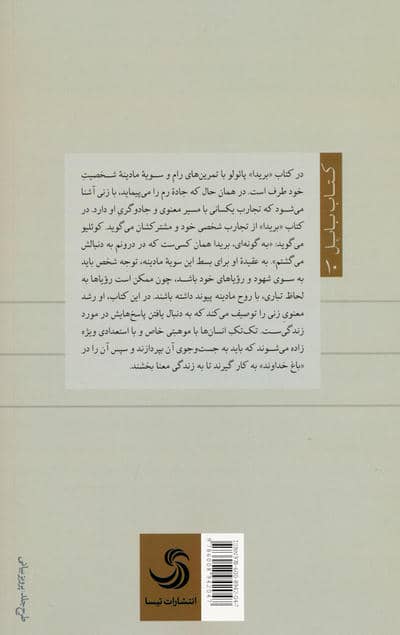 در کتاب «بریدا» پائولو با تمرین‌های رام و سویهٔ مادینهٔ شخصیتِ
خود طرف است. در همان حال که جادهٔ رم را می‌پیماید، با زنی آشنا
می‌شود که تجارب یکسانی با مسیر معنوی و جادوگریِ او دارد. در
کتاب «بریدا» از تجارب شخصی خود و مشترکشان می‌گوید. کوئلیو
می‌گوید: «به گونه‌ای، بریدا همان کسی‌ست که در درونم به دنبالش
می‌گشتم». به عقیدهٔ او برای بسط این سویهٔ مادینه، توجه شخص باید
به سوی شهود و رؤیاهای خود باشد، چون ممکن است رؤیاها به
لحاظ تباری، با روح مادینه پیوند داشته باشند. در این کتاب، او رشد
معنوی زنی را توصیف می‌کند که به دنبال یافتن پاسخ‌هایش در مورد
زندگی‌ست. تک‌تک انسان‌ها با موهبتی خاص و با استعدادی ویژه
زاده می‌شوند که باید به جست‌وجوی آن بپردازند و سپس آن را در
«باغ خداوند» به کار گیرند تا به زندگی معنا بخشند.
کتاب بابل
انتشارات تیسا
طرح جلد: پرویز بیانی